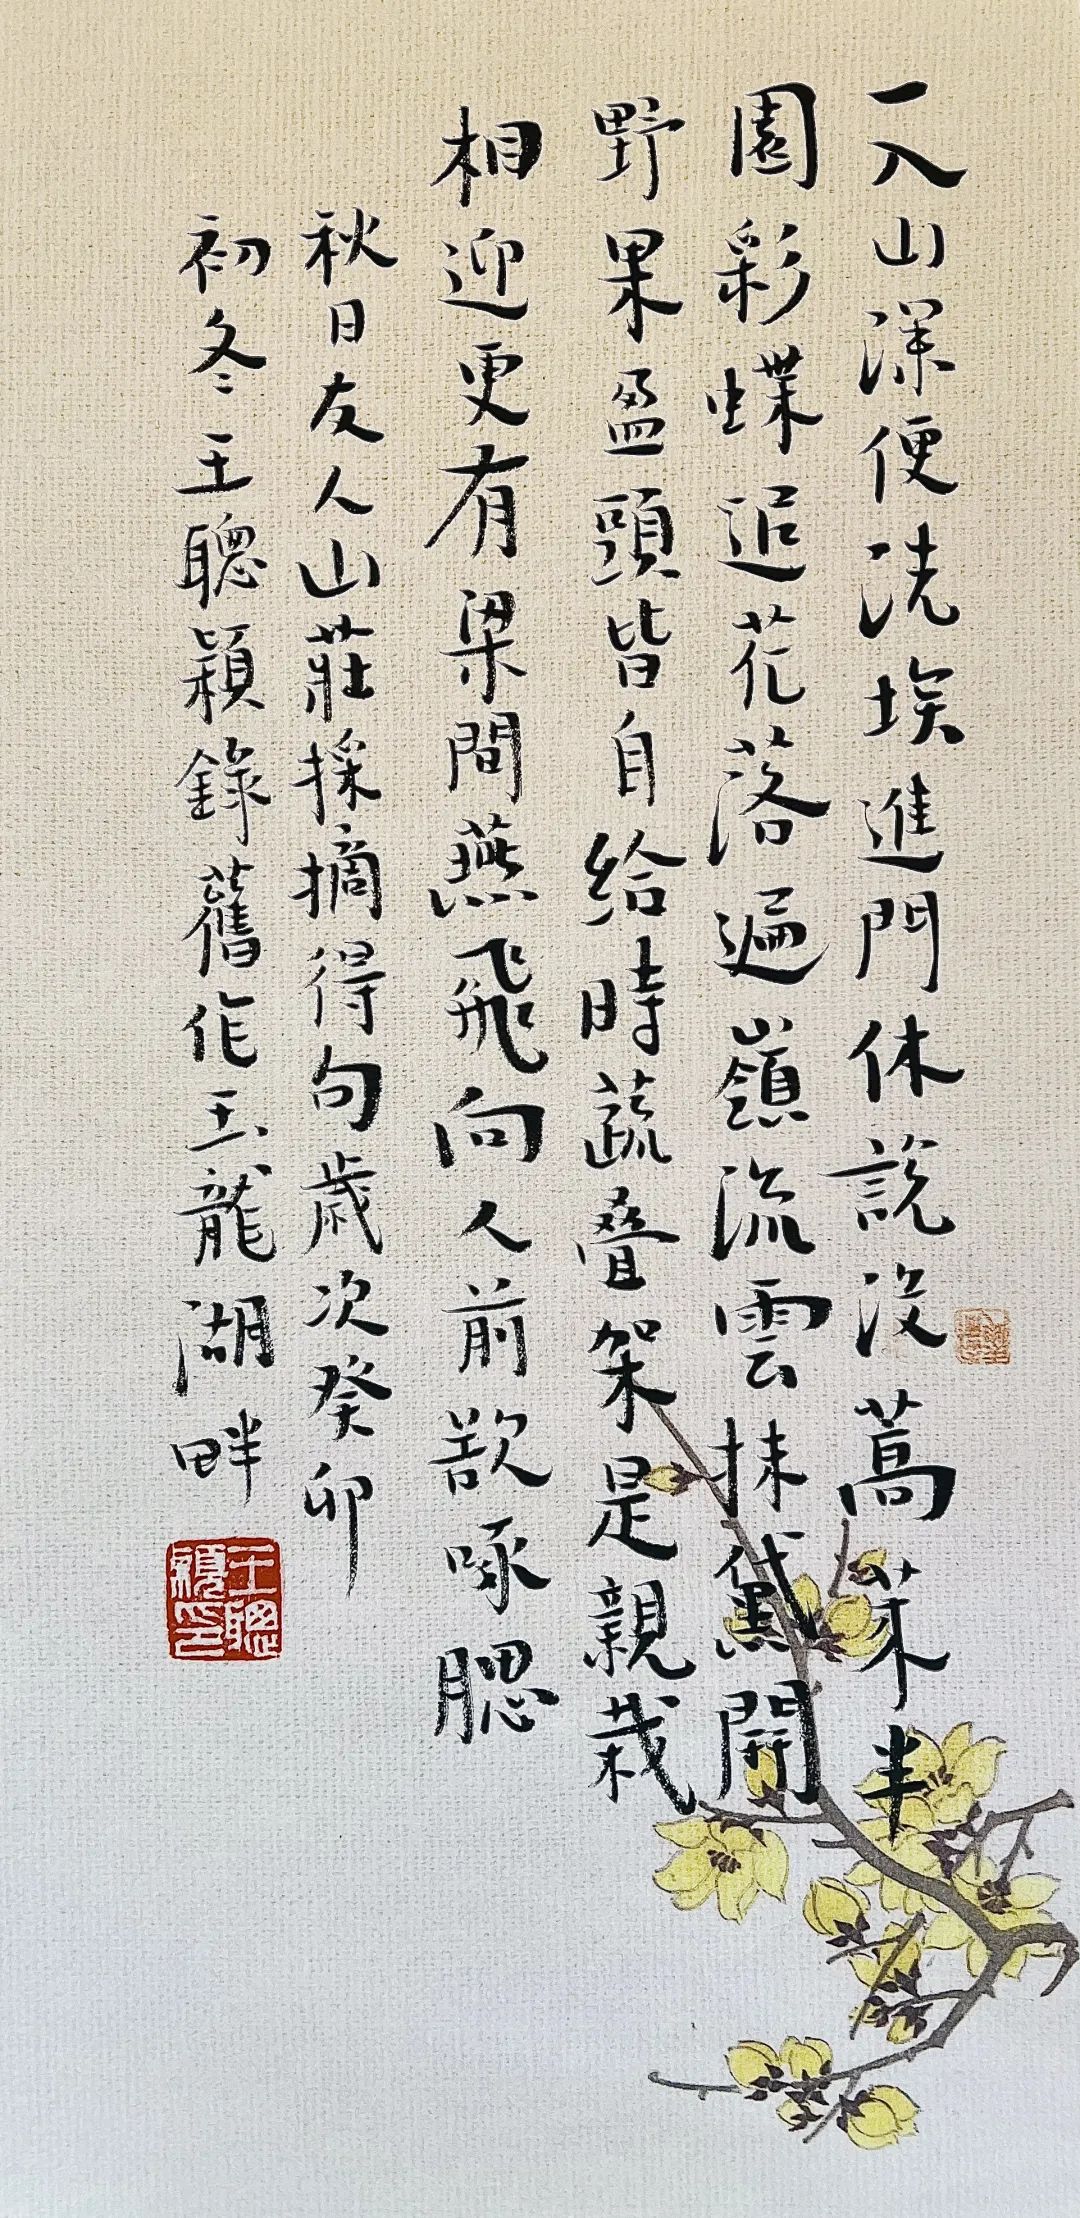 一入山深便洗埃進門休說没蒿萊半
園彩蝶追花落遍嶺流雲抹黛開
野果盈頭皆自給時蔬叠架是親栽
相迎更有梁間燕飛向人前歡啄腮
秋日友人山莊採摘得句歲次癸卯
初冬王聰穎錄舊作玉龍湖畔
王聰
穎印